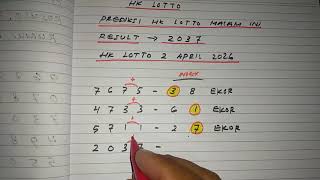 HK LOTTO
PREDIKSI HK LOTTO MALAM INI
RESULT → 2037
HK LOTTO 2 APRIL 2026
INDEX
7 6 7 5 - 3 8 EKOR
4 7 3 3 - 6 1 EKOR
5 7 1 1 - 2 7 EKOR
2 0 3 7 -